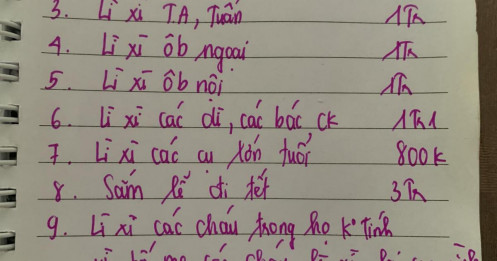 3. Lì xì T.A, Tuấn 1Tr
4. Lì xì ôb ngoại 1Tr
5. Lì xì ôb nội 1Tr
6. Lì xì các dì, các bác ck 1Tr1
7. Lì xì các cụ lớn tuổi 800k
8. Sắm lễ đi tết 3Tr
9. Lì xì các cháu trong họ k° tính